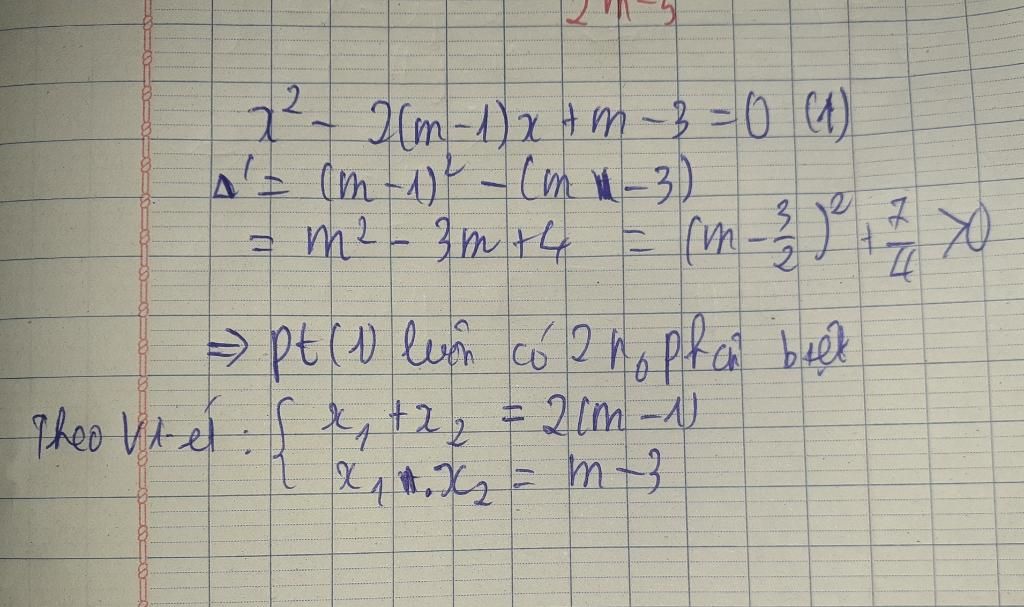 2m-3
x² - 2(m-1)x + m - 3 = 0 (1)
Δ' = (m-1)² - (m - 3)
= m² - 3m + 4 = (m - 3/2)² + 7/4 > 0
⇒ pt (1) luôn có 2 n₀ phân biệt
Theo Vi-ét : { x₁ + x₂ = 2(m-1)
x₁ . x₂ = m - 3